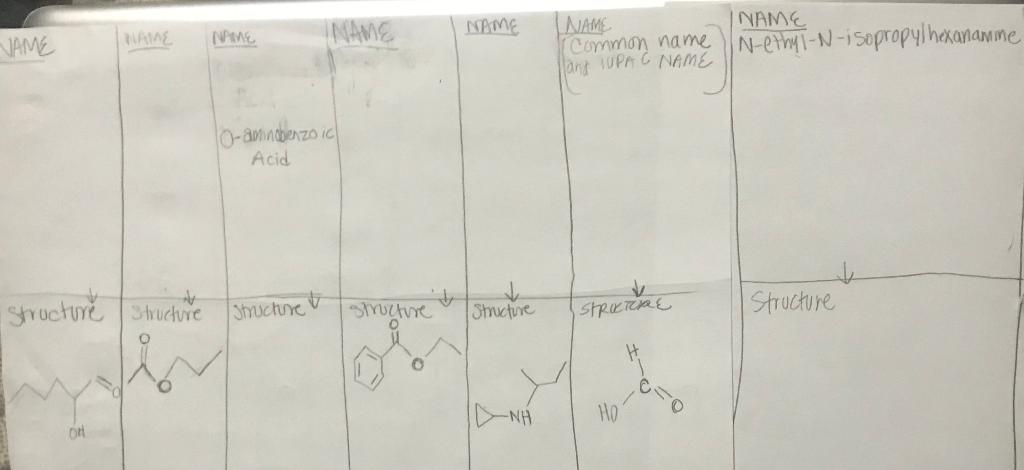 NAME
NAME
NAME
O-aminobenzoic
Acid
NAME
NAME
NAME
(Common name
and IUPAC NAME)
NAME
N-ethyl-N-isopropylhexanamine
Structure
Structure
Structure
Structure
Structure
STRUCTURE
Structure
O
OH
O
O
O
O
NH
H
C
HO
O